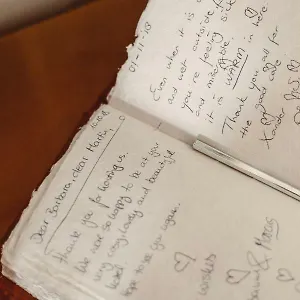 01-11-18
Even when it is c
and wet outside t
you're feeling sick
and miserable.
it is WARM in here
Thank you all for
the good care
Xander
Dear Barbara, dear Martin,
Thank you for having us.
We were so happy to be at your
very cosy, lovely and beautiful
hotel.
Hope to see you again.
wishes
& Marcus